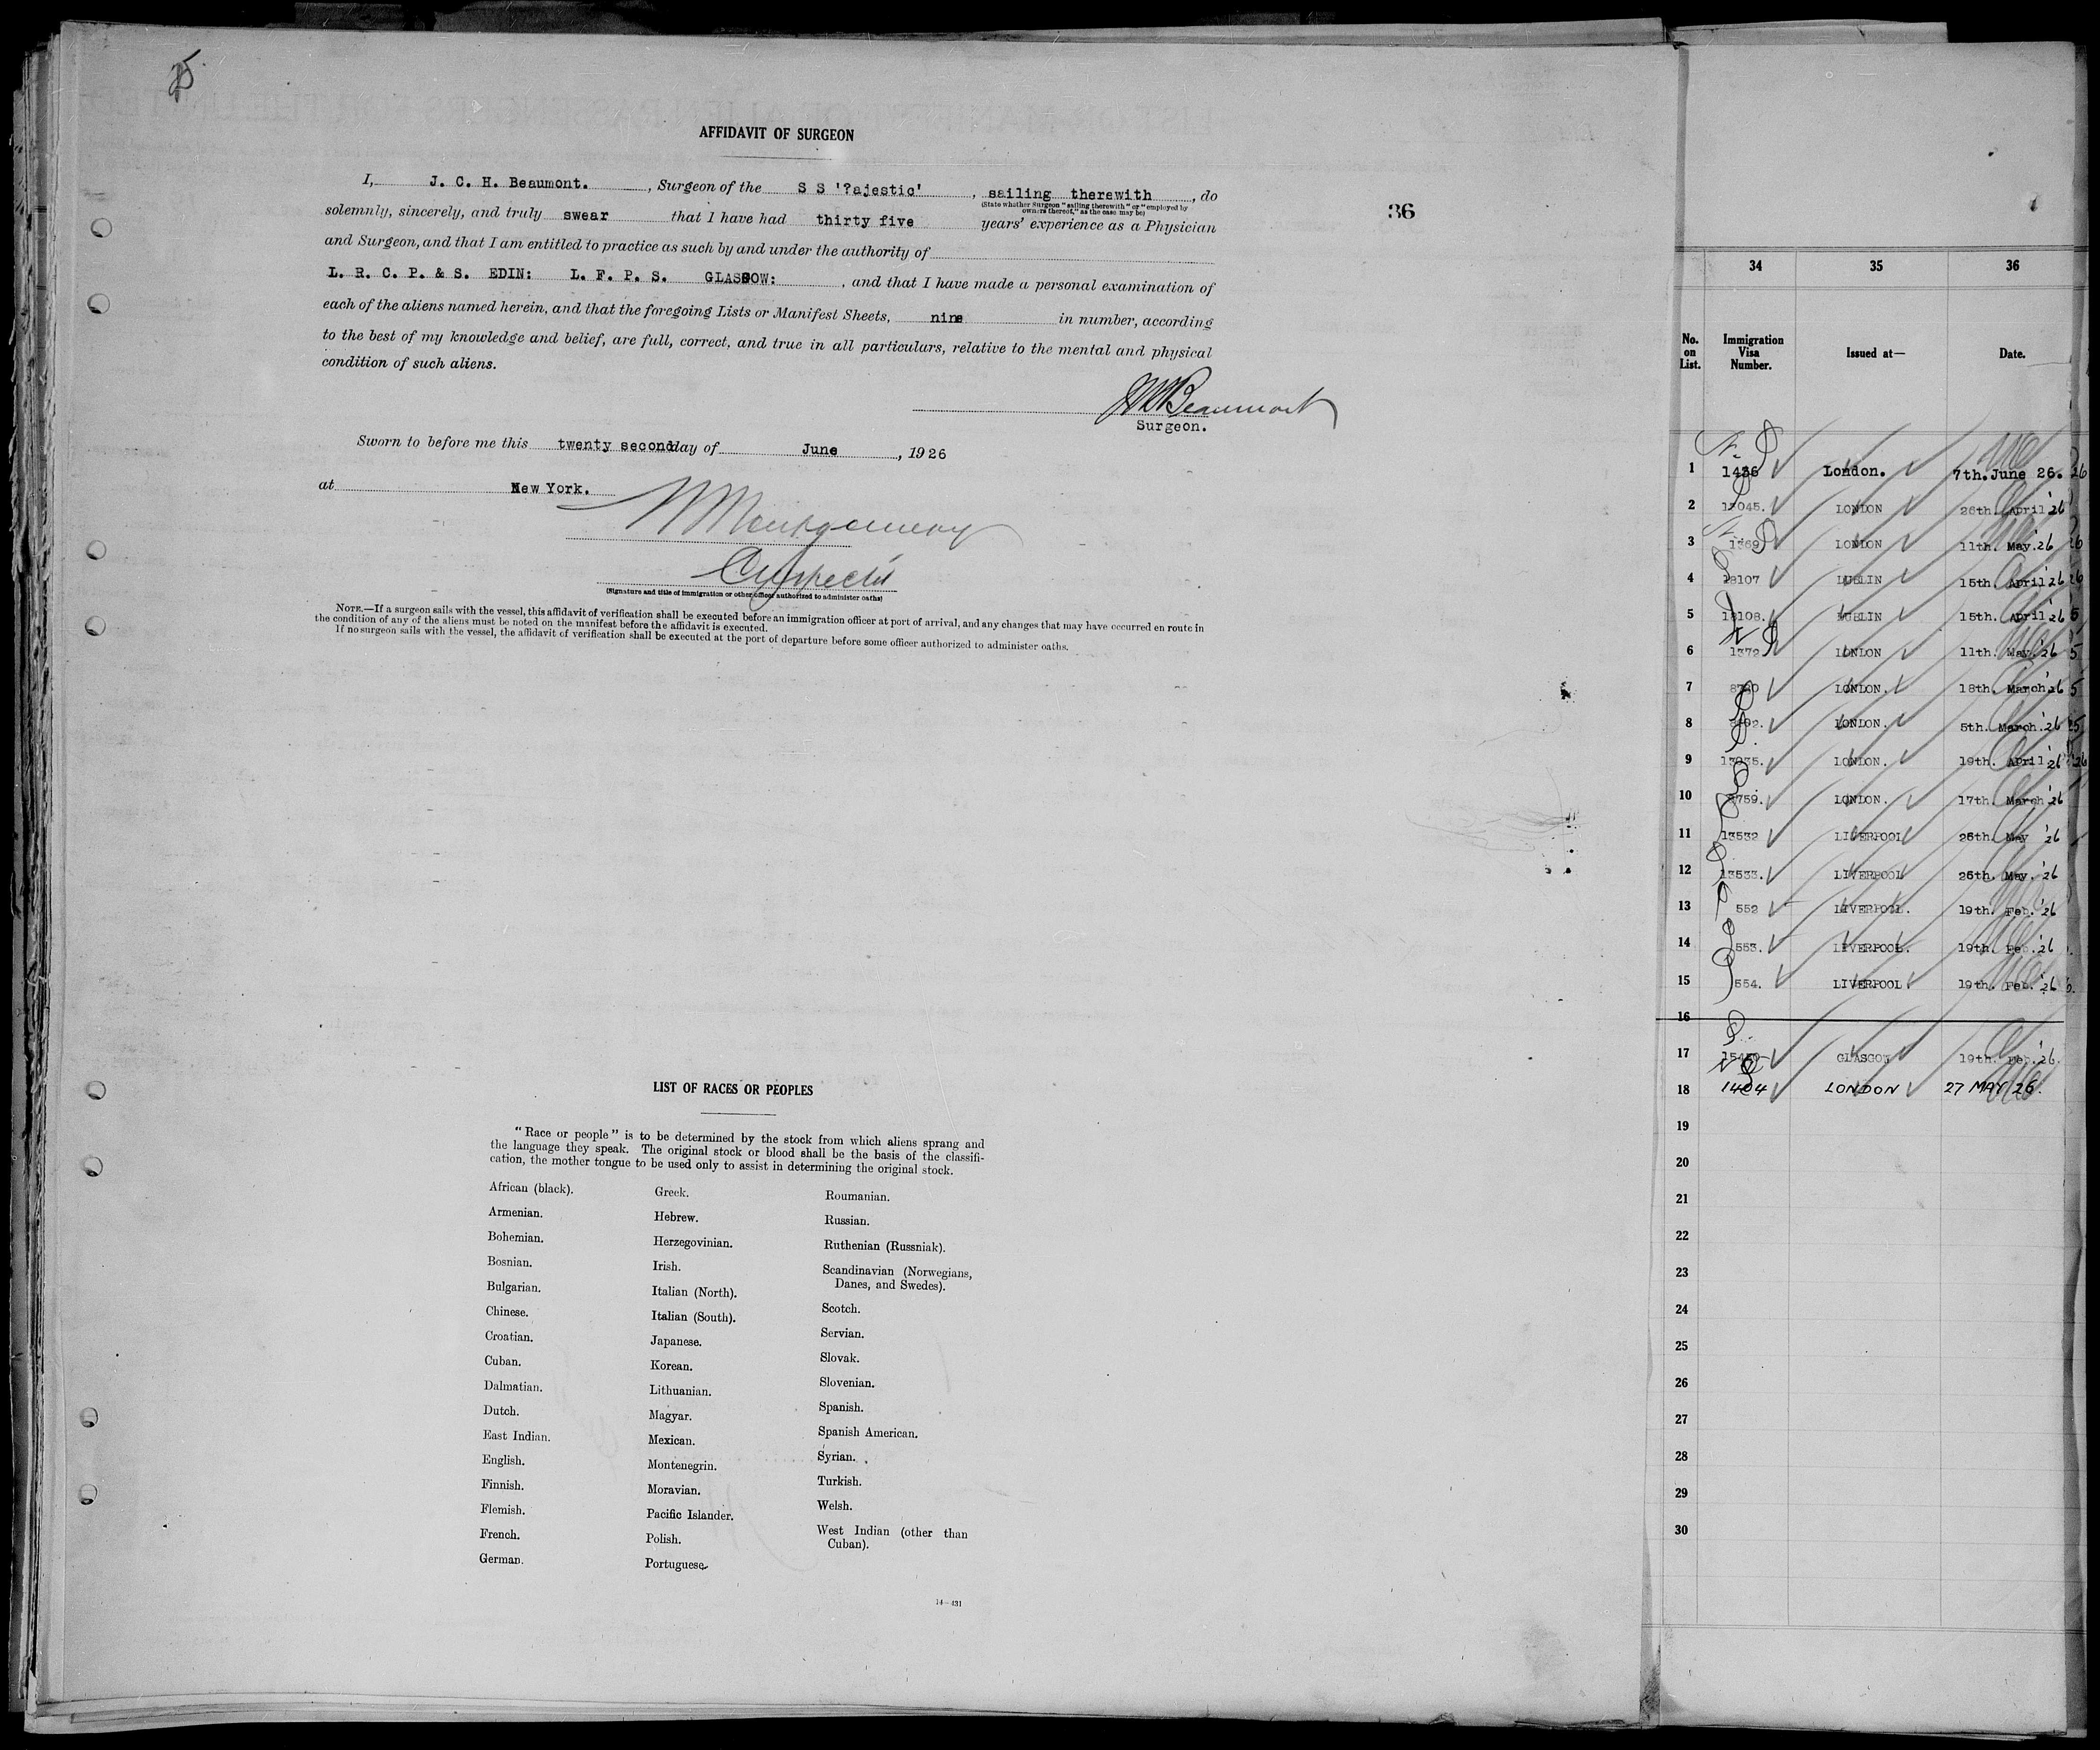 AFFIDAVIT OF SURGEON
I, J. C. H. Beaumont. , Surgeon of the S S '?ajestic' , sailing therewith , do
(State whether Surgeon "sailing therewith" or "employed by owners thereof," as the case may be)
solemnly, sincerely, and truly swear that I have had thirty five years' experience as a Physician
36
and Surgeon, and that I am entitled to practice as such by and under the authority of
L. R. C. P. & S. EDIN: L. F. P. S. GLASGOW: , and that I have made a personal examination of
each of the aliens named herein, and that the foregoing Lists or Manifest Sheets, nine in number, according
to the best of my knowledge and belief, are full, correct, and true in all particulars, relative to the mental and physical
condition of such aliens.
Beaumont
Surgeon.
Sworn to before me this twenty second day of June , 1926
at New York.
Montgomery
(Signature and title of immigration or other officer authorized to administer oaths)
NOTE.—If a surgeon sails with the vessel, this affidavit of verification shall be executed before an immigration officer at port of arrival, and any changes that may have occurred en route in
the condition of any of the aliens must be noted on the manifest before the affidavit is executed.
If no surgeon sails with the vessel, the affidavit of verification shall be executed at the port of departure before some officer authorized to administer oaths.
LIST OF RACES OR PEOPLES
"Race or people" is to be determined by the stock from which aliens sprang and
the language they speak. The original stock or blood shall be the basis of the classifi-
cation, the mother tongue to be used only to assist in determining the original stock.
African (black).
Armenian.
Bohemian.
Bosnian.
Bulgarian.
Chinese.
Croatian.
Cuban.
Dalmatian.
Dutch.
East Indian.
English.
Finnish.
Flemish.
French.
German.
Greek.
Hebrew.
Herzegovinian.
Irish.
Italian (North).
Italian (South).
Japanese.
Korean.
Lithuanian.
Magyar.
Mexican.
Montenegrin.
Moravian.
Pacific Islander.
Polish.
Portuguese.
Roumanian.
Russian.
Ruthenian (Russniak).
Scandinavian (Norwegians,
Danes, and Swedes).
Scotch.
Servian.
Slovak.
Slovenian.
Spanish.
Spanish American.
Syrian.
Turkish.
Welsh.
West Indian (other than
Cuban).
14—431
34 35 36
No. on List. Immigration Visa Number. Issued at— Date.
1 1436 London. 7th. June 26.
2 LONDON 26th. April '26
3 1369 LONDON 11th. May. '26
4 18107 DUBLIN 15th. April '26
5 18108. DUBLIN 15th. April '26
6 1372 LONDON 11th. May. '26
7 LONDON. 18th. March '26
8 LONDON. 5th. March. '26
9 LONDON. 19th. April '26
10 LONDON. 17th. March '26
11 13532 LIVERPOOL 26th. May '26
12 13533. LIVERPOOL 26th. May. '26
13 552 LIVERPOOL. 19th. Feb. '26
14 553. LIVERPOOL. 19th. Feb. '26
15 554. LIVERPOOL. 19th. Feb. '26
16
17 GLASGOW 19th. Feb. '26.
18 1404 LONDON 27 MAY 26.
19
20
21
22
23
24
25
26
27
28
29
30